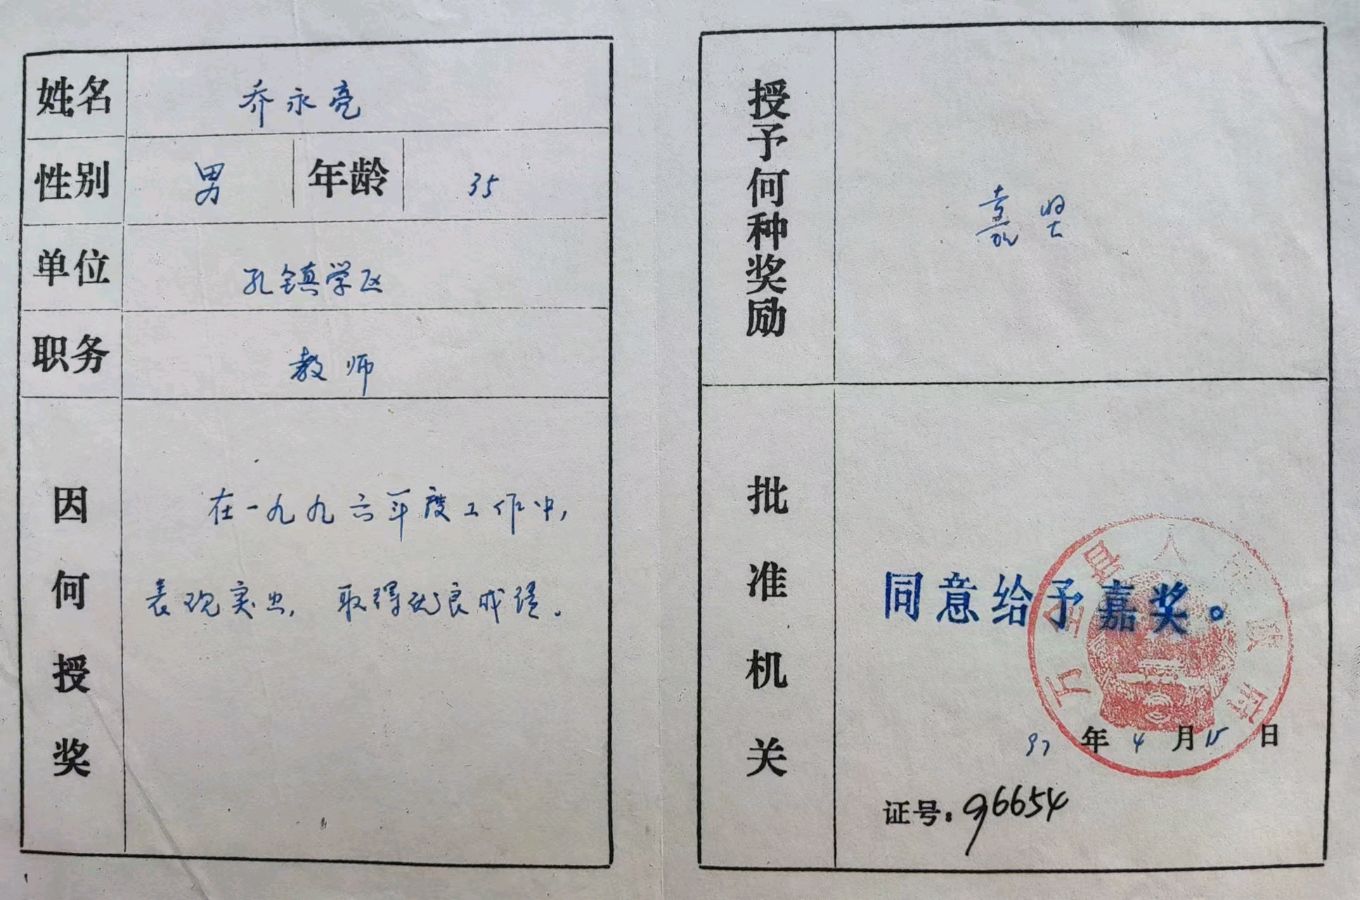 姓名 乔永亮
性别 男 年龄 35
单位 孔镇学区
职务 教师
因何授奖
在一九九六年度工作中,
表现突出,取得优良成绩。
授予何种奖励
嘉奖
批准机关
同意给予嘉奖。
万全县人民政府
97年4月15日
证号:96654